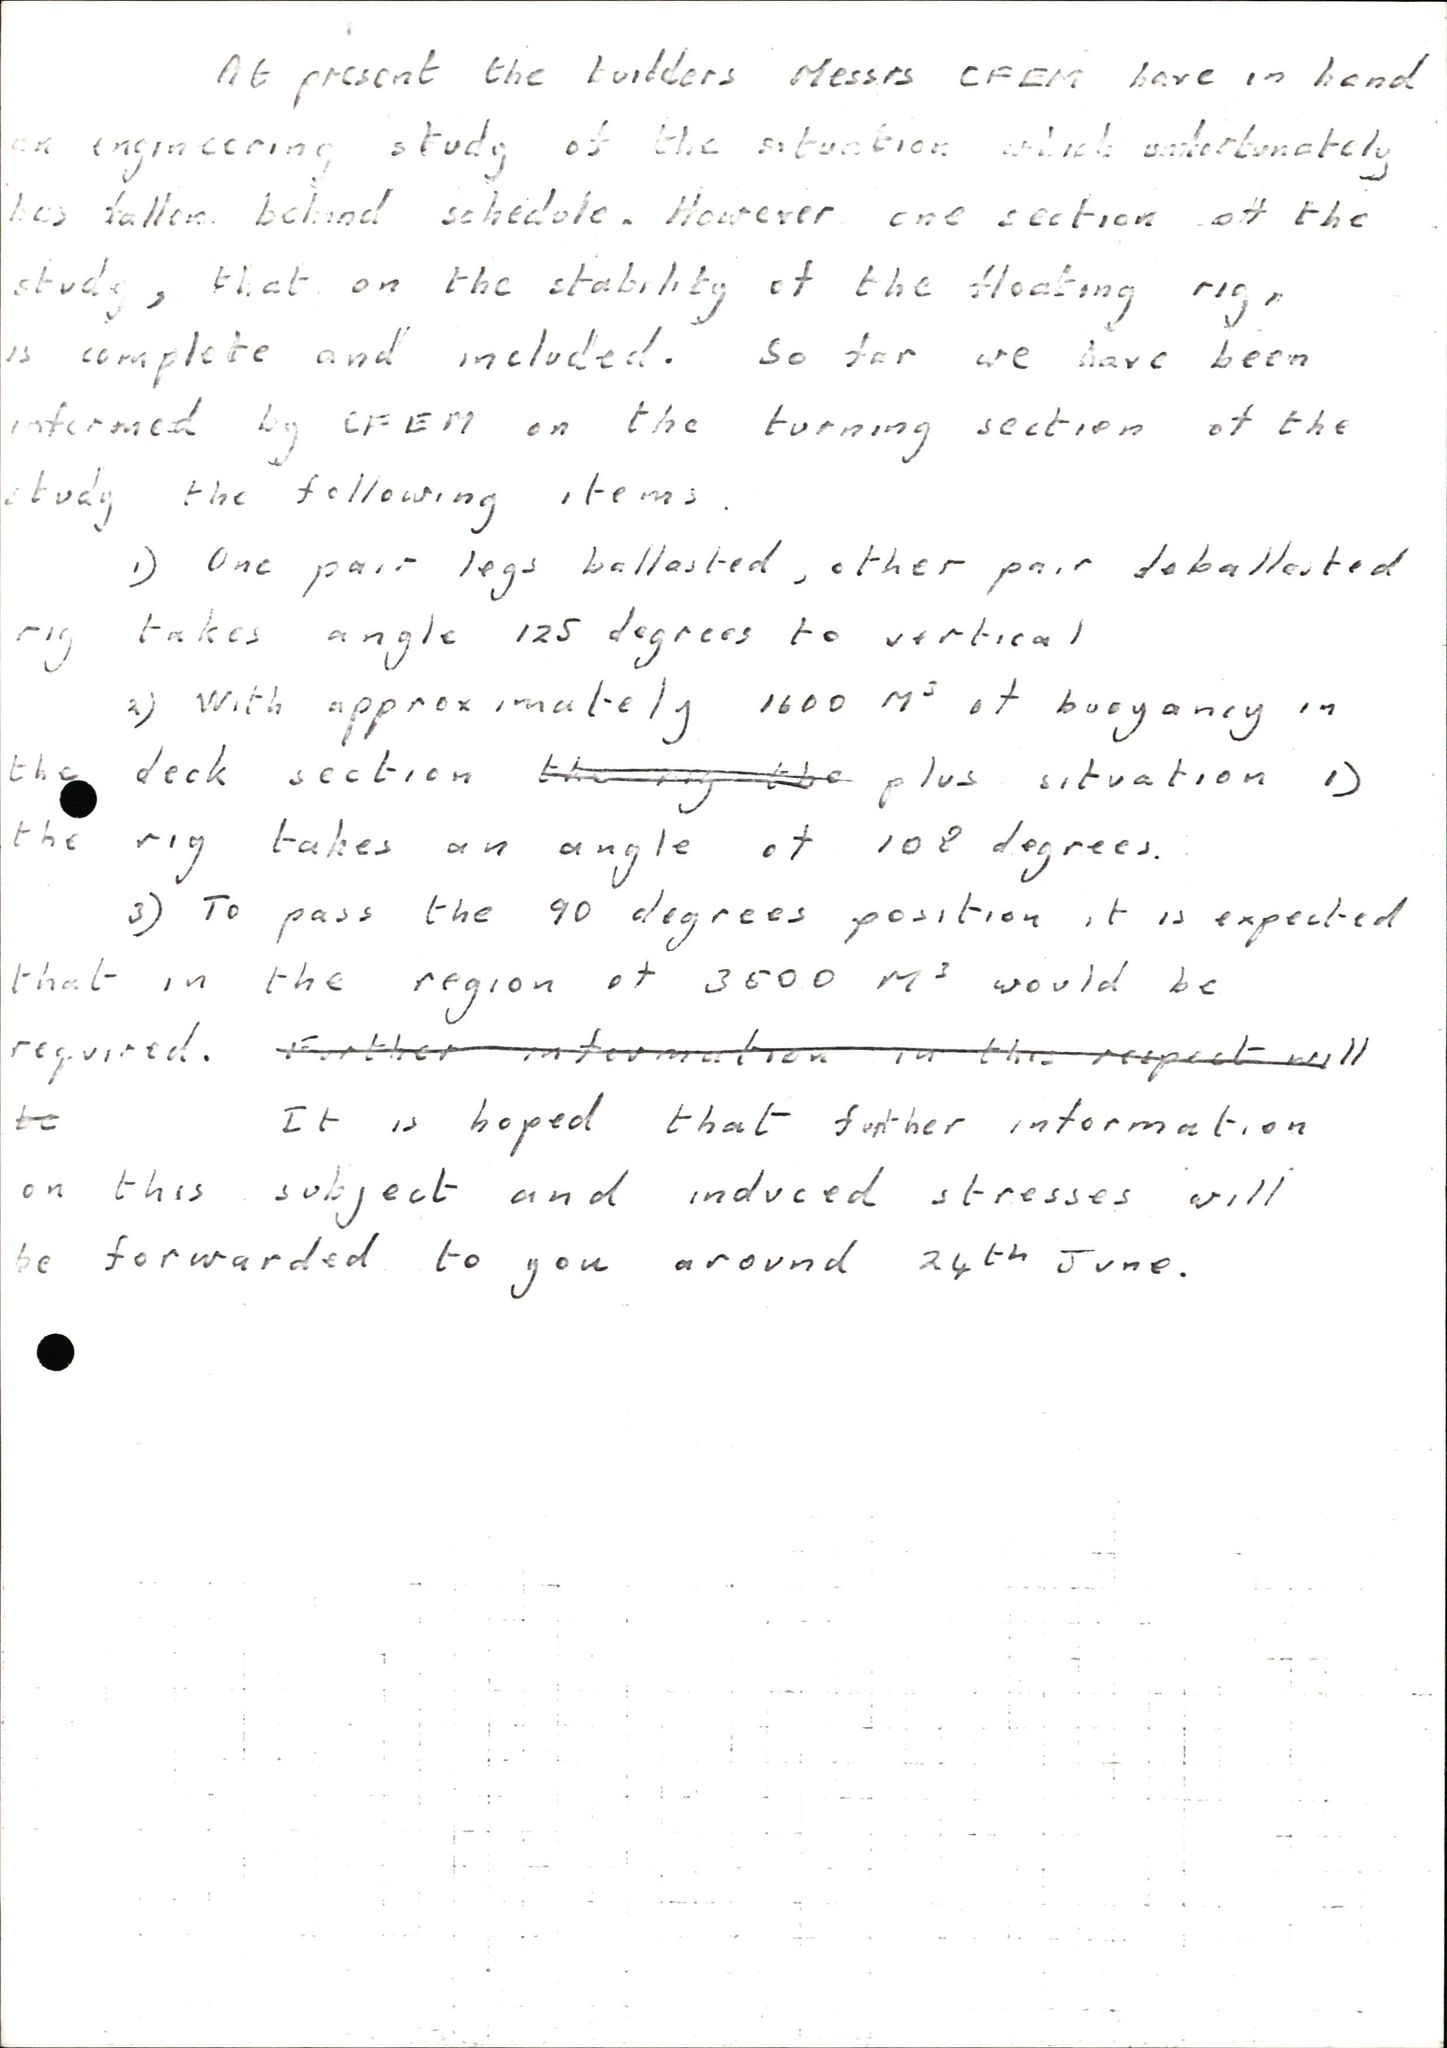 At present the builders Messrs CFEM have in hand
an engineering study of the situation which unfortunately
has fallen behind schedule. However one section of the
study, that on the stability of the floating rig,
is complete and included. So far we have been
informed by CFEM on the turning section of the
study the following items.
1) One pair legs ballasted, other pair deballasted
rig takes angle 125 degrees to vertical
2) With approximately 1600 M³ of buoyancy in
the deck section the rig the plus situation 1)
the rig takes an angle of 108 degrees.
3) To pass the 90 degrees position it is expected
that in the region of 3500 M³ would be
required. Further information in this respect will
be It is hoped that further information
on this subject and induced stresses will
be forwarded to you around 24th June.